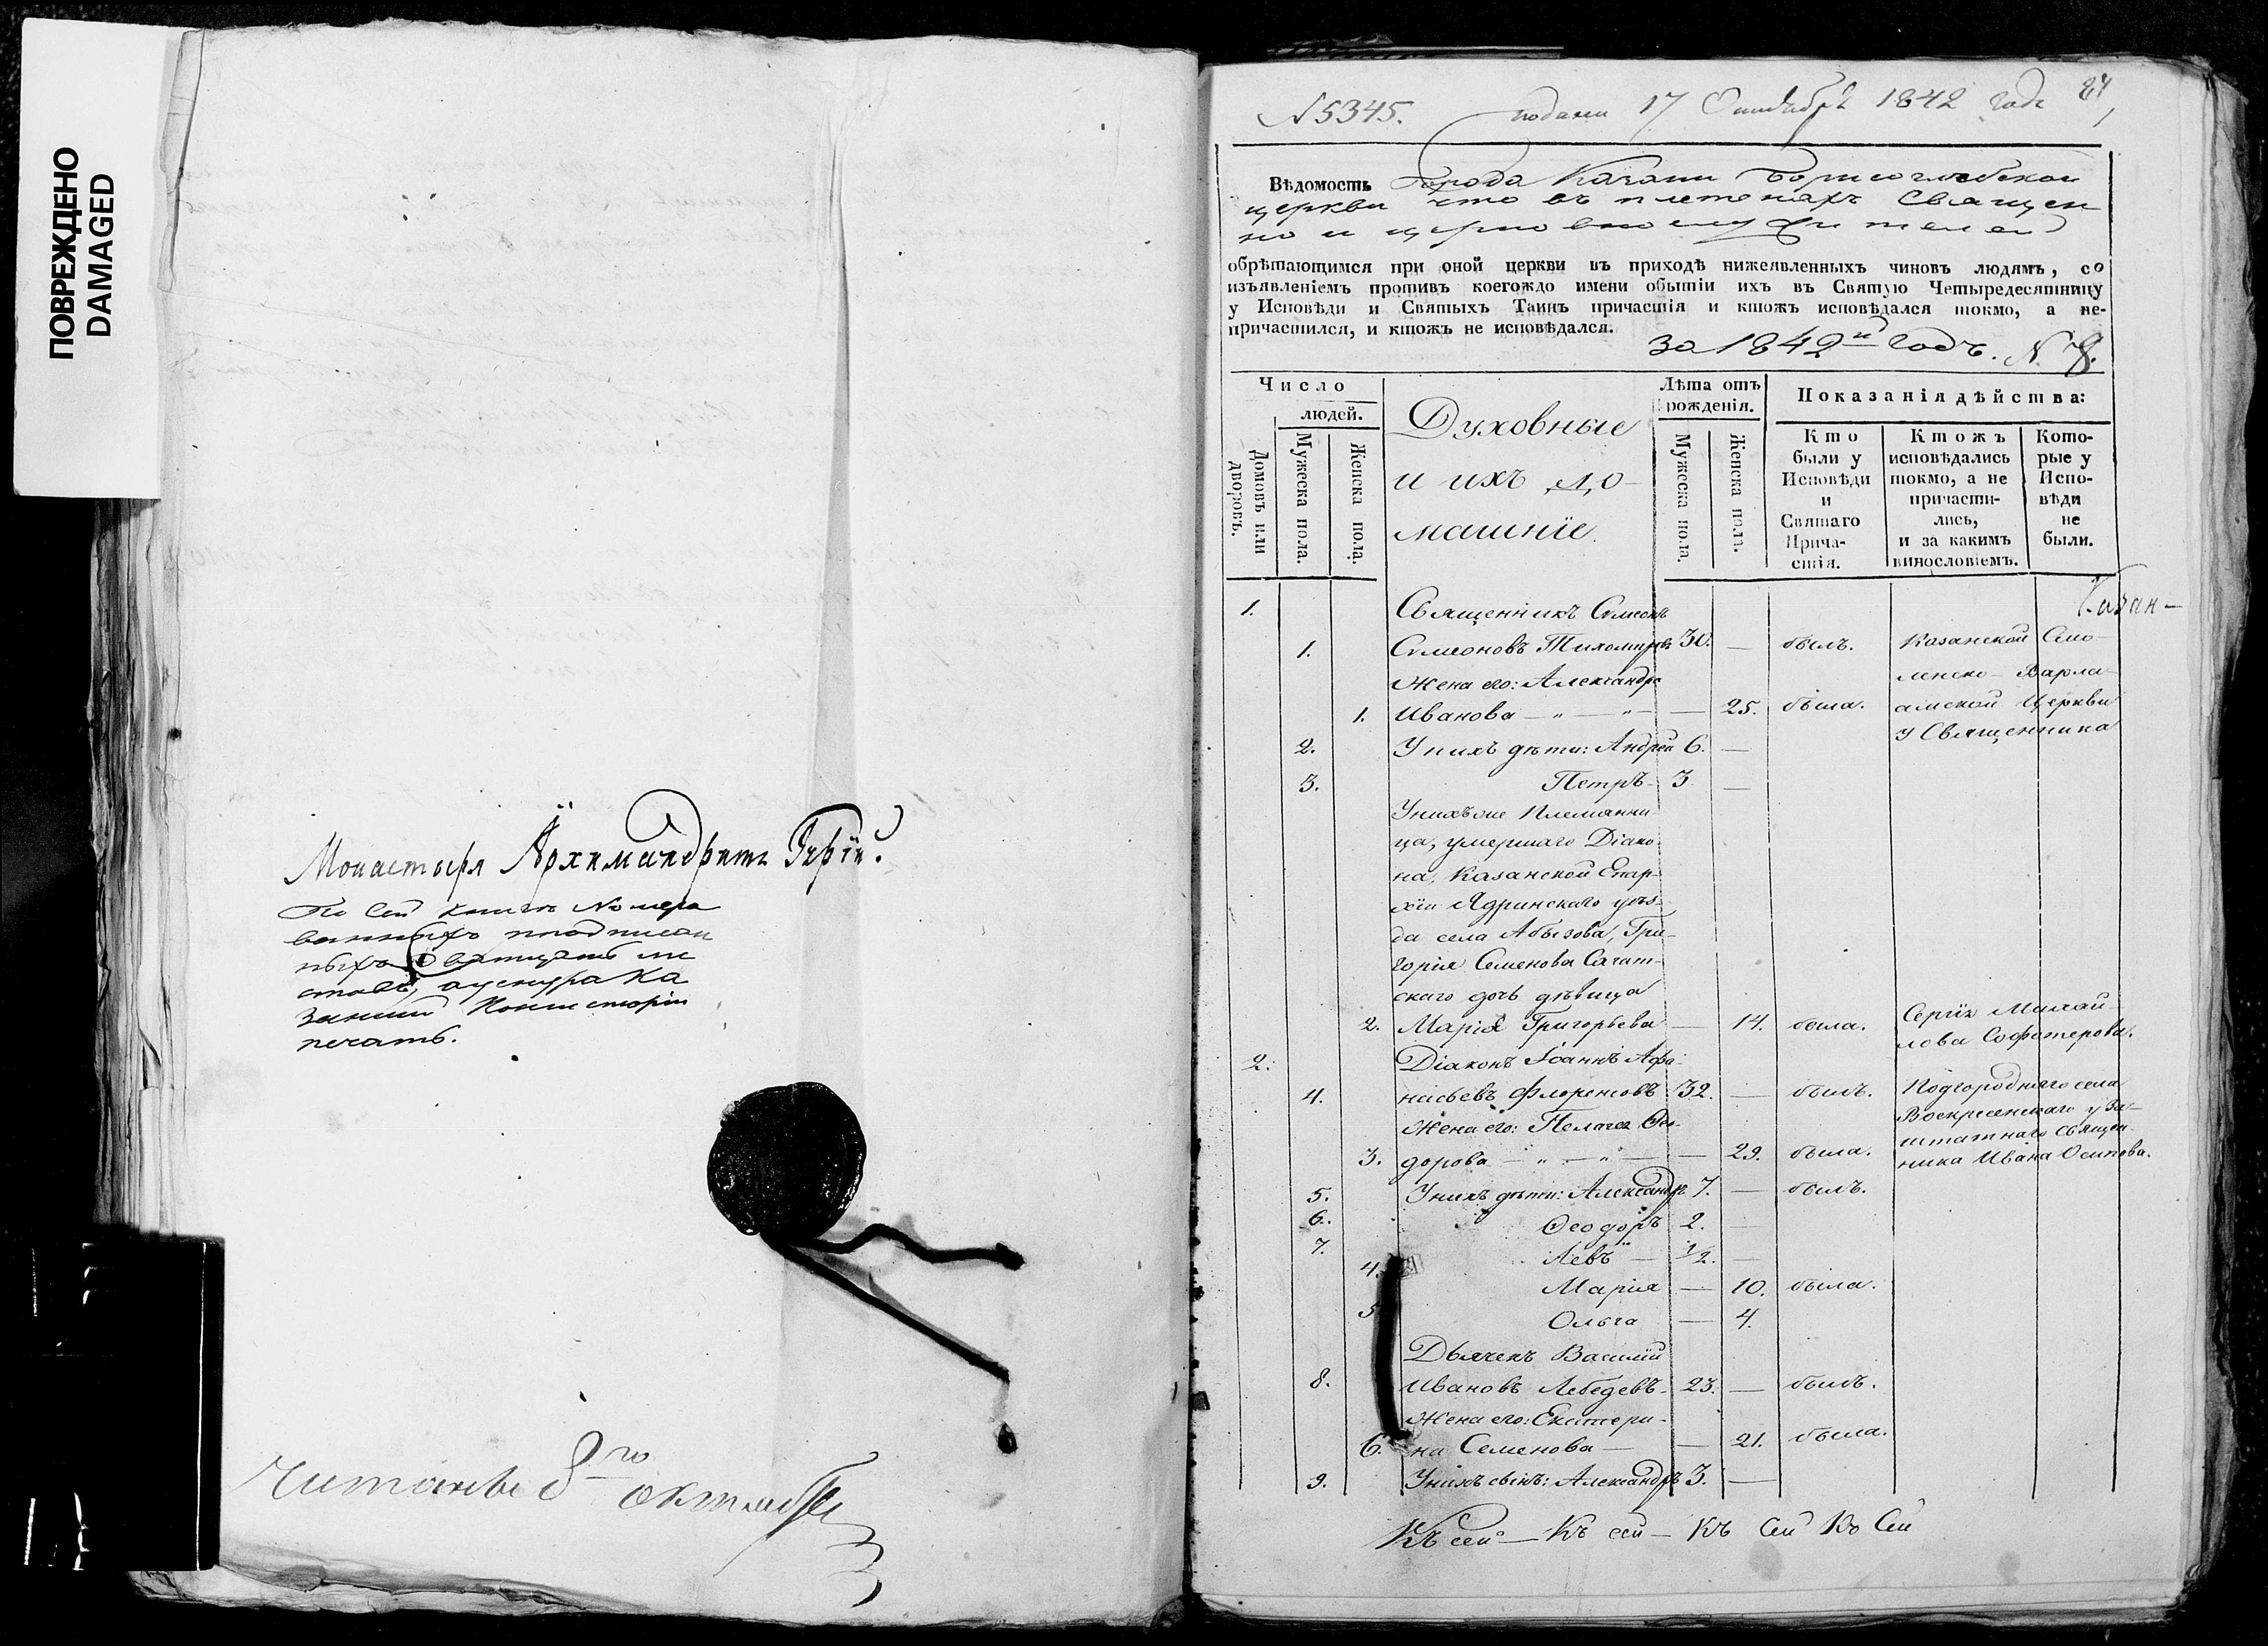 ПОВРЕЖДЕНО
DAMAGED
Монастыря Архимандритъ Гурій.
По сей книгѣ Номеро
ванныхъ подписан
ныхъ Двѣнадцать ли
стовъ, а у снура Ка
занской Консисторіи
печать.
Читанъ 8го октября
N 5345. подана 17 Октября 1842 года
Вѣдомость Города Казани Борисоглѣбской
церкви что въ плетеняхъ Священ
но и церковнослужителей
обрѣтающимся при оной церкви въ приходѣ нижеявленныхъ чиновъ людямъ, со
изъявленіемъ противъ коегождо имени обытіи ихъ въ Святую Четыредесятницу
у Исповѣди и Святыхъ Таинъ причастія и ктожъ исповѣдался токмо, а не-
причастился, и ктожъ не исповѣдался.
За 1842й годъ. N. 8.
Число
людей.
Домовъ или дворовъ.
Мужеска пола.
Женска пола.
Духовные
и ихъ до-
машніе.
Лѣта отъ
рожденія.
Мужеска пола.
Женска пола.
Показанія дѣйства:
Кто
были у
Исповѣди
и
Святаго
Прича-
стія.
Ктожъ
исповѣдались
токмо, а не
причасти-
лись,
и за какимъ
винословіемъ.
Кото-
рые у
Испо-
вѣди
не
были.
Казан-
1. Священникъ Симеонъ
1. Симеоновъ Тихомировъ 30. — былъ. Казанской Смо-
Жена его: Александра ленско- Варла-
1. Иванова — " — " — — 25. была. амской Церкви
2. У нихъ дѣти: Андрей 6. — у Священника
3. Петръ 3 —
У нихъ же Племянни-
ца, умершаго Діако-
на, Казанской Епар-
хіи Ядринскаго уѣз-
да села Абызова, Гри-
горія Семенова Сагат-
скаго дочь дѣвица
2. Марія Григорьева — 14. была. Сергія Михай-
лова Софотерова.
2. Діаконъ Іоаннъ Афа-
4. насьевъ Флоренсовъ 32. — былъ. Подгороднаго села
Жена его: Пелагея Ѳе- Воскресенскаго у За-
3. дорова — " — " — — 29. была. штатнаго Священ-
ника Ивана Осипова.
5. У нихъ дѣти: Александръ 7. — былъ.
6. Ѳеодоръ 2. —
7. Левъ — 1/2. —
4. Марія — 10. была.
5 Ольга — 4.
Дьячекъ Василій
8. Ивановъ Лебедевъ 23. — былъ.
Жена его: Екатери-
6. на Семенова — — 21. была.
9. У нихъ сынъ: Александръ 3. —
Къ сей — Къ сей — Къ Сей Ко Сей